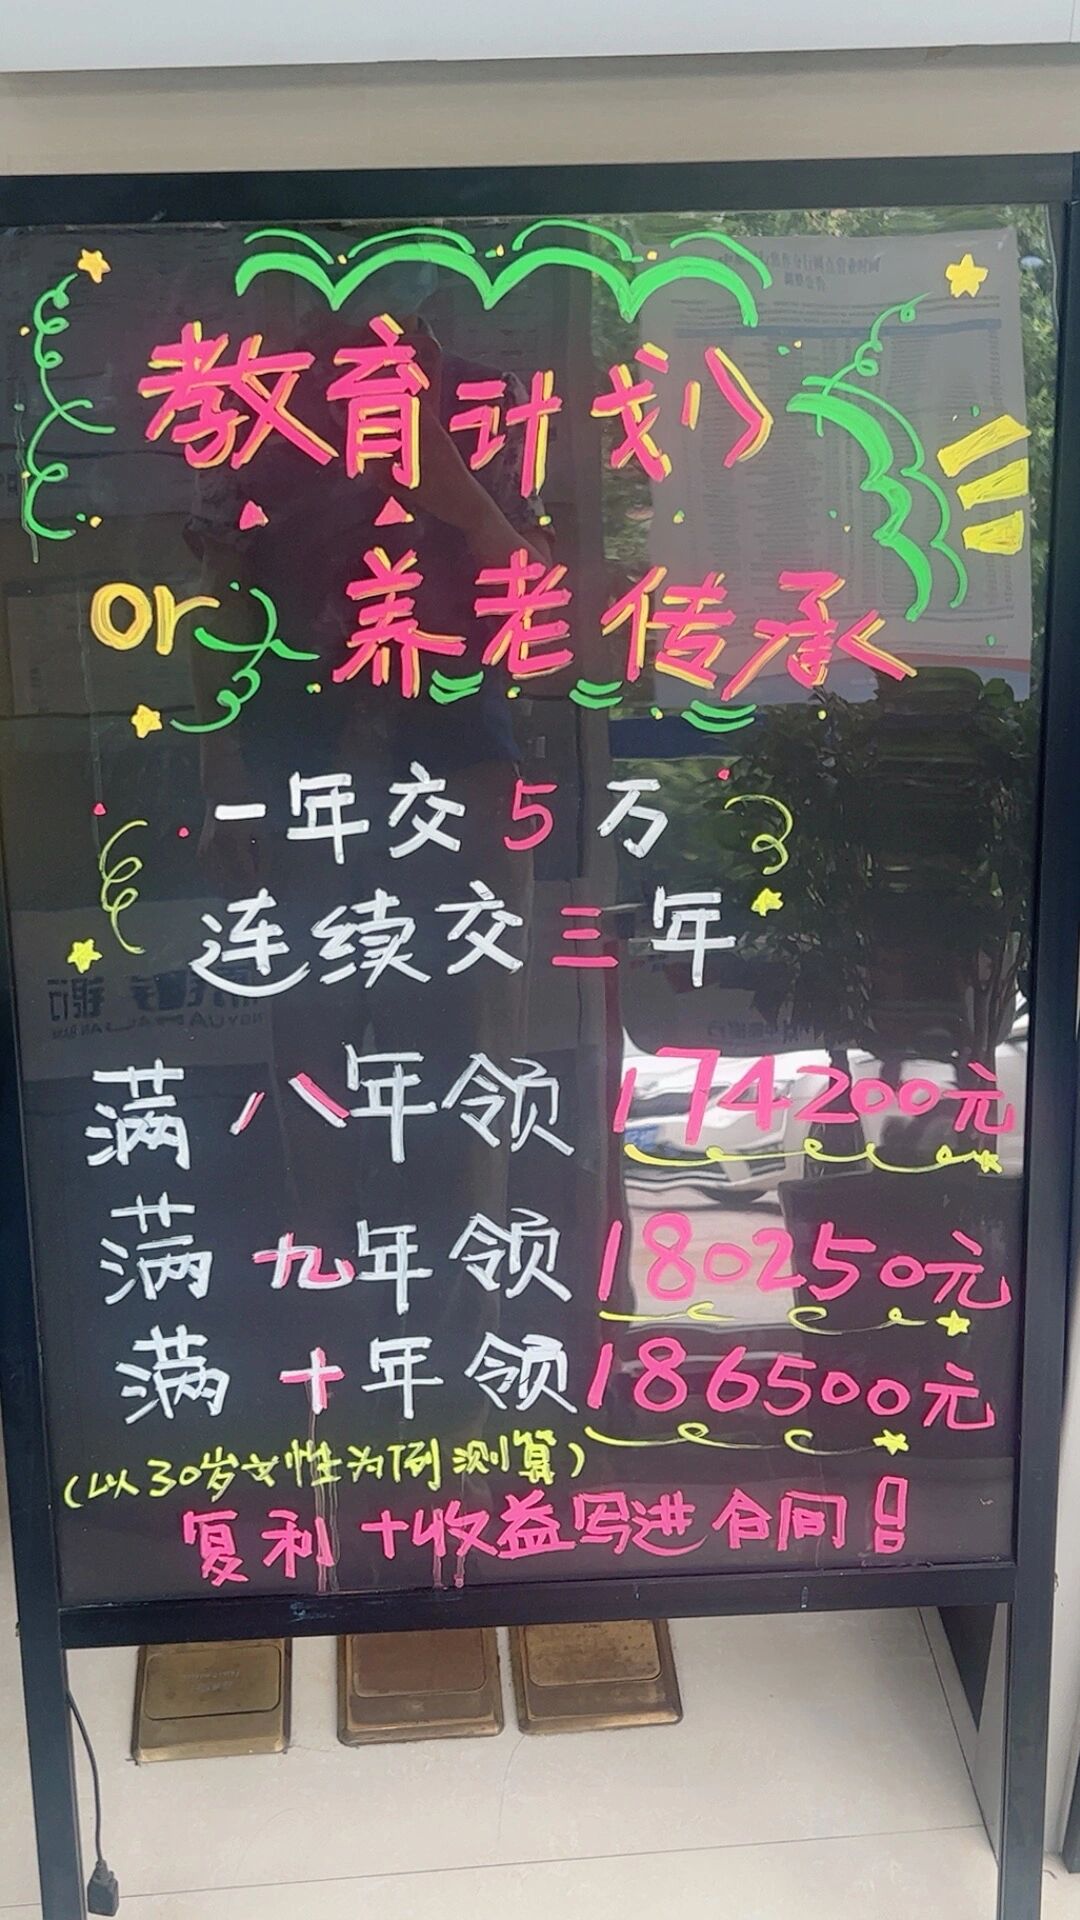 教育计划
or 养老传承
一年交5万
连续交三年
满八年领174200元
满九年领180250元
满十年领186500元
(以30岁女性为例测算)
复利+收益写进合同!